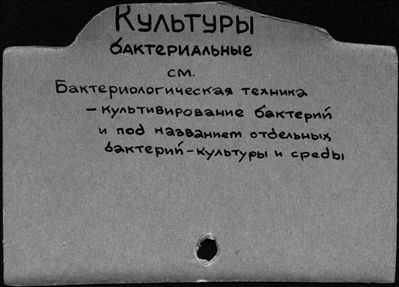 Культуры
бактериальные
см.
Бактериологическая техника
- культивирование бактерий
и под названием отдельных
бактерий - культуры и среды